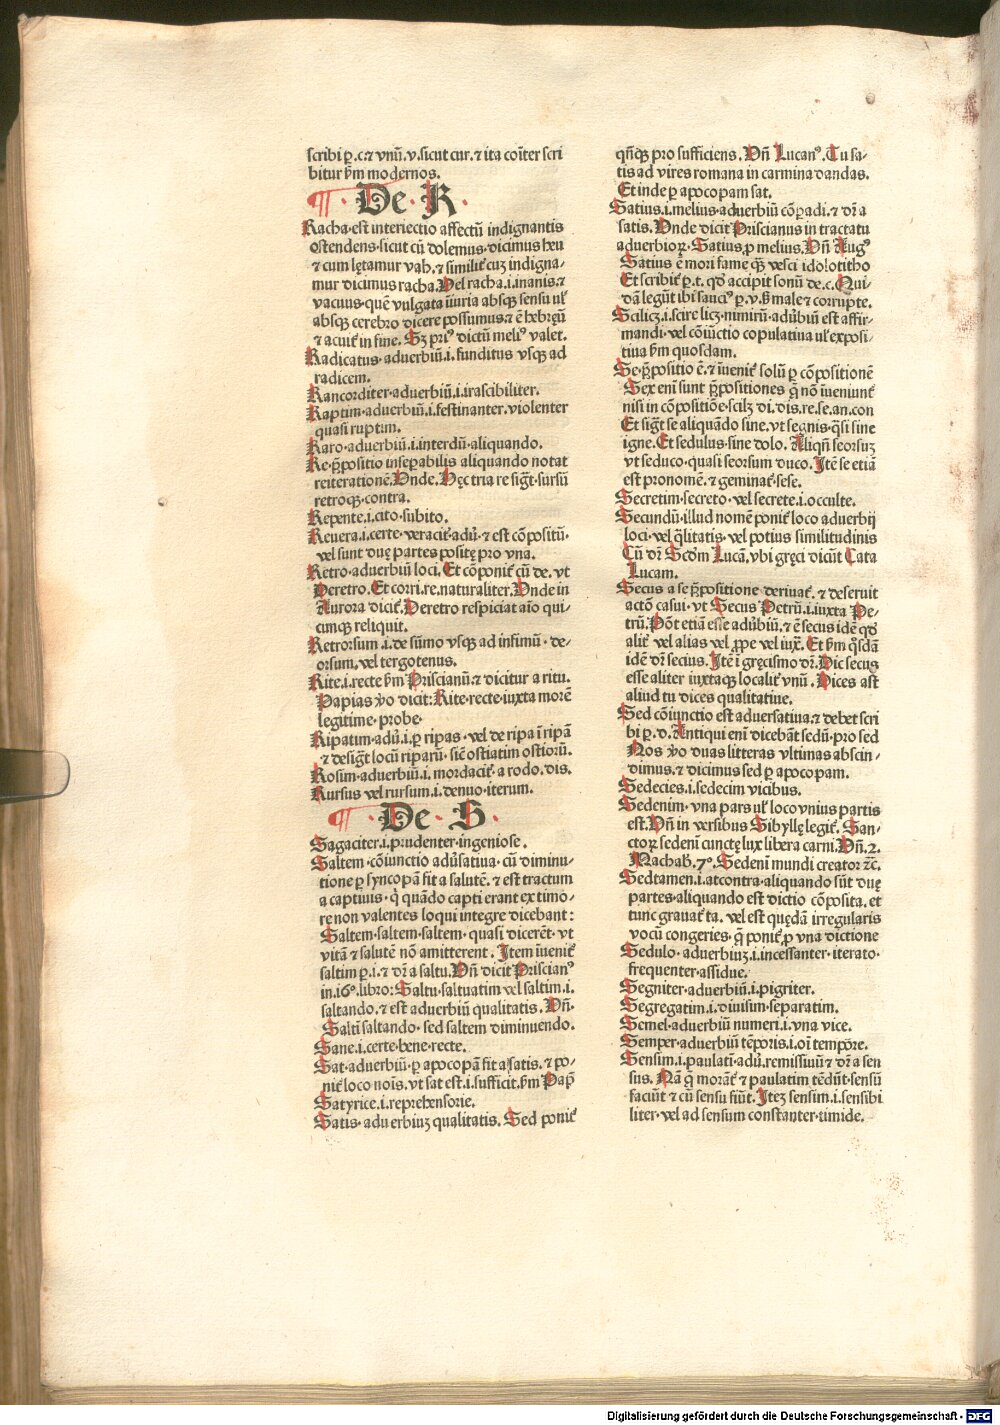 scribi ꝑ.c.⁊ vnũ.v.sicut cur.⁊ ita cõiter scri
bitur ẜm modernos.
¶ · De · R ·
Racha·est interiectio affectũ indignantis
ostendens·sicut cũ dolemus·dicimus heu
⁊ cum lętamur vah.⁊ similiť cuz indigna⸗
mur dicimus racha.Vel racha.i.inanis.⁊
vacuus·quẽ vulgata iĩuria absqꝫ sensu uľ
absqꝫ cerebro dicere possumus.⁊ ẽ hebręũ
⁊ acuiť in fine. Sꝫ pri⁹ dictũ meli⁹ valet.
Radicatus·aduerbiũ.i.funditus vsqꝫ ad
radicem.
Rancorditer·aduerbiũ.i.irascibiliter.
Raptim·aduerbiũ.i.festinanter.violenter
quasi ruptim.
Raro·aduerbiũ.i.interdũ·aliquando.
Re·p̃positio inseꝑabilis aliquando notat
reiterationẽ.Vnde.Hęc tria re sigt̃·sursũ
retroqꝫ·contra.
Repente.i.cito·subito.
Reuera.i.certe·veraciť·adũ·⁊ est cõpositũ·
vel sunt duę partes positę pro vna.
Retro·aduerbiũ loci. Et cõponiť cũ de.vt
Deretro.Et corri.re.naturaliter.Vnde in
Aurora diciť.Deretro respiciat aĩo qui⸗
cunqꝫ reliquit.
Retrorsum.i.de sũmo vsqꝫ ad infimũ·de⸗
orsum.vel tergotenus.
Rite.i.recte ẜm Priscianũ.⁊ dicitur a ritu.
Papias ṽo dicit:Rite·recte·iuxta morẽ
legitime·probe·
Ripatim·adũ.i.ꝑ ripas·vel de ripa ĩ ripã
⁊ desigt̃ locũ riparũ·sic̃ ostiatim ostiorũ.
Rosim·aduerbiũ.i.mordaciť·a rodo.dis.
Rursus vel rursum.i.denuo·iterum.
¶ · De · S ·
Sagaciter.i.prudenter·ingeniose.
Saltem·cõiunctio adũsatiua·cũ diminu⸗
tione ꝑ syncopã fit a salutẽ.⁊ est tractum
a captiuis·q̇ quãdo capti erant ex timo⸗
re non valentes loqui integre dicebant:
Saltem·saltem·saltem·quasi dicerẽt·vt
vitã ⁊ salutẽ nõ amitterent.Item ĩueniť
saltim ꝑ.i.⁊ dr̃ a saltu.Vñ dicit Priscian⁹
in.16⁰.libro:Saltu·saltuatim vel saltim.i.
saltando.⁊ est aduerbiũ qualitatis. Vñ·
Saltĩ saltando·sed saltem diminuendo.
Sane.i.certe·bene·recte.
Sat·aduerbiũ·ꝑ apocopã fit a satis.⁊ po⸗
niť loco nois.vt sat est.i.sufficit.ẜm Pap̃
Satyrice.i.reprehensorie.
Satis·aduerbiuꝫ qualitatis. Sed poniť
qñqꝫ pro sufficiens.Vñ Lucan⁹.Tu sa⸗
tis ad vires romana in carmina dandas.
Et inde ꝑ apocopam sat.
Satius.i.melius·aduerbiũ cõꝑadi.⁊ dr̃ a
satis. Vnde dicit Priscianus in tractatu
aduerbioꝝ·Satius,ꝓ melius.Vñ Aug⁹
Satius ẽ mori fame qꝫ̃ vesci idolotitho
Et scribiť ꝑ.t. qď accipit sonũ de.c.Qui⸗
dã legũt ibi sanci⁹ ꝑ.v.ẜ male ⁊ corrupte.
Scilicꝫ.i.scire licꝫ·nimirũ·adũbiũ est affir⸗
mandi·vel cõiũctio copulatiua uľ exposi⸗
tiua ẜm quosdam.
Se·p̃positio ẽ.⁊ ĩueniť solũ ꝑ cõpositionẽ
Sex eni sunt p̃positiones q̃ nõ ĩueniunť
nisi in cõpositiõe·scilꝫ di.dis.re.se.an.con
Et sigt̃ se aliquãdo sine.vt segnis·q̃si sine
igne.Et sedulus·sine dolo. Aliqñ seorsuꝫ
vt seduco·quasi seorsum duco.Itẽ se etiã
est pronomẽ.⁊ geminať·sese.
Secretim·secreto·vel secrete.i.occulte.
Secundũ·illud nomẽ poniť loco aduerbij
loci·vel q̃litatis·vel potius similitudinis
Cũ dr̃ Scdm Lucã.vbi gręci dicũt Cata
Lucam.
Secus a se p̃positione·deriuať.⁊ deseruit
actõ casui·vt Secus Petrũ.i.iuxta Pe⸗
trũ.Põt etiã esse adũbiũ.⁊ ẽ secus idẽ qď
aliť vel alias vel ꝓpe vel iux̃. Et ẜm q̃sdã
idẽ dr̃ secius.Itẽ ĩ gręcismo dr̃.Hic secus
esse aliter iuxtaqꝫ localiť vnũ.Dices ast
aliud tu dices qualitatiue.
Sed cõiunctio est aduersatiua.⁊ debet scri
bi ꝑ.d.Antiqui eni dicebãt sedũ·pro sed
Nos ṽo duas litteras vltimas abscin⸗
dimus.⁊ dicimus sed ꝑ apocopam.
Sedecies.i.sedecim vicibus.
Sedenim·vna pars uľ loco vnius partis
est.Vñ in versibus Sibyllę legiť. San⸗
ctoꝝ sedeni cunctę lux libera carni.Vñ.2.
Machab̃.7⁰.Sedeni mundi creator ⁊c̃.
Sedtamen.i.atcontra·aliquando sũt duę
partes·aliquando est dictio cõposita.et
tunc grauať ta. vel est quędã irregularis
vocũ congeries·q̃ poniť,ꝓ vna dictione
Sedulo·aduerbiuꝫ.i.incessanter·iterato·
frequenter·assidue.
Segniter·aduerbiũ.i.pigriter.
Segregatim.i.diuisim·separatim.
Semel·aduerbiũ numeri.i.vna vice.
Semper·aduerbiũ tẽporis.i.oĩ tempore.
Sensim.i.paulati·adũ.remissiuũ ⁊ dr̃ a sen
sus. Nã q̃ morãť ⁊ paulatim tẽdũt·sensũ
faciũt ⁊ cũ sensu fiũt. Iteꝫ sensim.i.sensibi
liter·vel ad sensum constanter·timide.
Digitalisierung gefördert durch die Deutsche Forschungsgemeinschaft - DFG